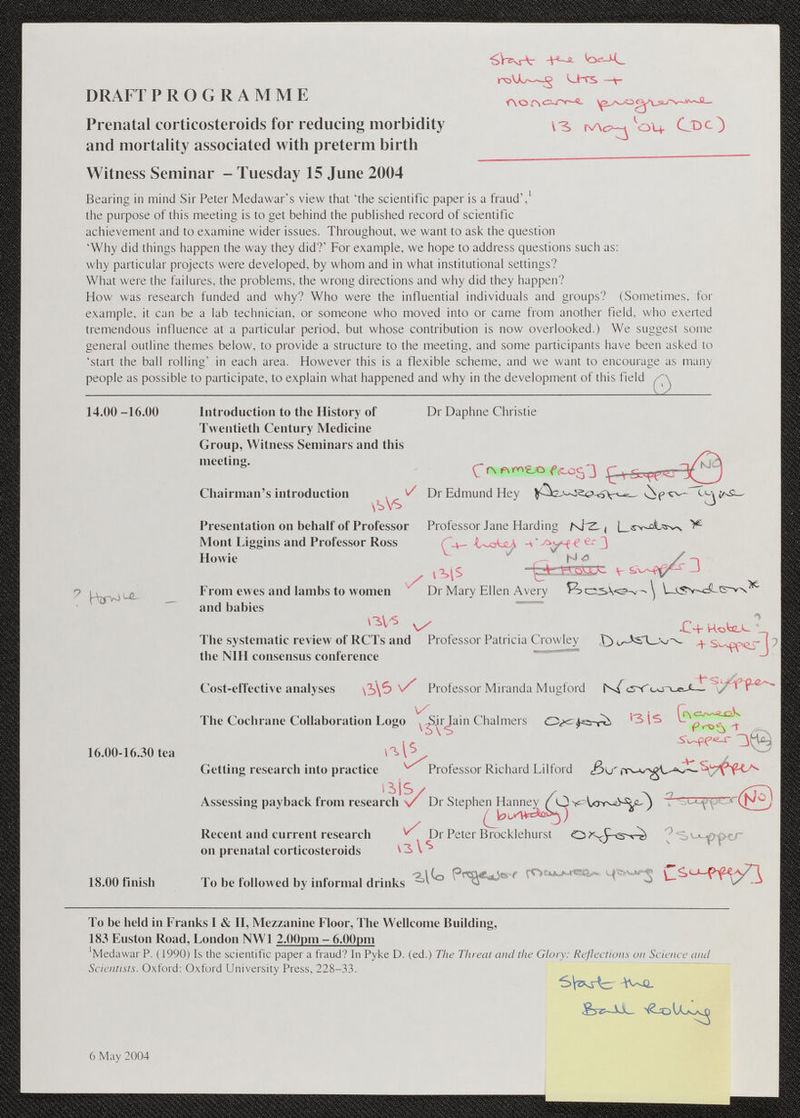 Start the ball
rolling Ltrs +
noname programme
13 May '04 (DC)
DRAFT P R O G R A M M E
Prenatal corticosteroids for reducing morbidity
and mortality associated with preterm birth
Witness Seminar – Tuesday 15 June 2004
Bearing in mind Sir Peter Medawar's view that 'the scientific paper is a fraud',¹
the purpose of this meeting is to get behind the published record of scientific
achievement and to examine wider issues. Throughout, we want to ask the question
'Why did things happen the way they did?' For example, we hope to address questions such as:
why particular projects were developed, by whom and in what institutional settings?
What were the failures, the problems, the wrong directions and why did they happen?
How was research funded and why? Who were the influential individuals and groups? (Sometimes, for
example, it can be a lab technician, or someone who moved into or came from another field, who exerted
tremendous influence at a particular period, but whose contribution is now overlooked.) We suggest some
general outline themes below, to provide a structure to the meeting, and some participants have been asked to
'start the ball rolling' in each area. However this is a flexible scheme, and we want to encourage as many
people as possible to participate, to explain what happened and why in the development of this field
14.00 –16.00 Introduction to the History of Dr Daphne Christie
Twentieth Century Medicine
Group, Witness Seminars and this
meeting.
[NAMED PROG] [+ Supper] NO
Chairman's introduction ✓ Dr Edmund Hey Newcastle Upon Tyne
13\5
Presentation on behalf of Professor Professor Jane Harding NZ, London *
Mont Liggins and Professor Ross [+ hotel + supper]
Howie NO
13\5 [+ Hotel + supper]
? Howie – From ewes and lambs to women ✓ Dr Mary Ellen Avery Boston \ London *
and babies
13\5 ✓ [+ Hotel ?
The systematic review of RCTs and Professor Patricia Crowley Dublin + Supper] ?
the NIH consensus conference
Cost-effective analyses 13\5 ✓ Professor Miranda Mugford Norwich + supper
The Cochrane Collaboration Logo ✓ Sir Iain Chalmers Oxford 13\5 [named
13\5 Prog +
supper] Yes
16.00-16.30 tea 13\5
Getting research into practice ✓ Professor Richard Lilford Birmingham + Supper
13\5
Assessing payback from research ✓ Dr Stephen Hanney (Uxbridge) ? supper No
Recent and current research ✓ Dr Peter Brocklehurst Oxford ? Supper
on prenatal corticosteroids 13\5
18.00 finish To be followed by informal drinks 2\6 Professor Maureen Young [Supper]
To be held in Franks I & II, Mezzanine Floor, The Wellcome Building,
183 Euston Road, London NW1 2.00pm – 6.00pm
¹Medawar P. (1990) Is the scientific paper a fraud? In Pyke D. (ed.) The Threat and the Glory: Reflections on Science and
Scientists. Oxford: Oxford University Press, 228–33.
Start the
Ball Rolling
6 May 2004